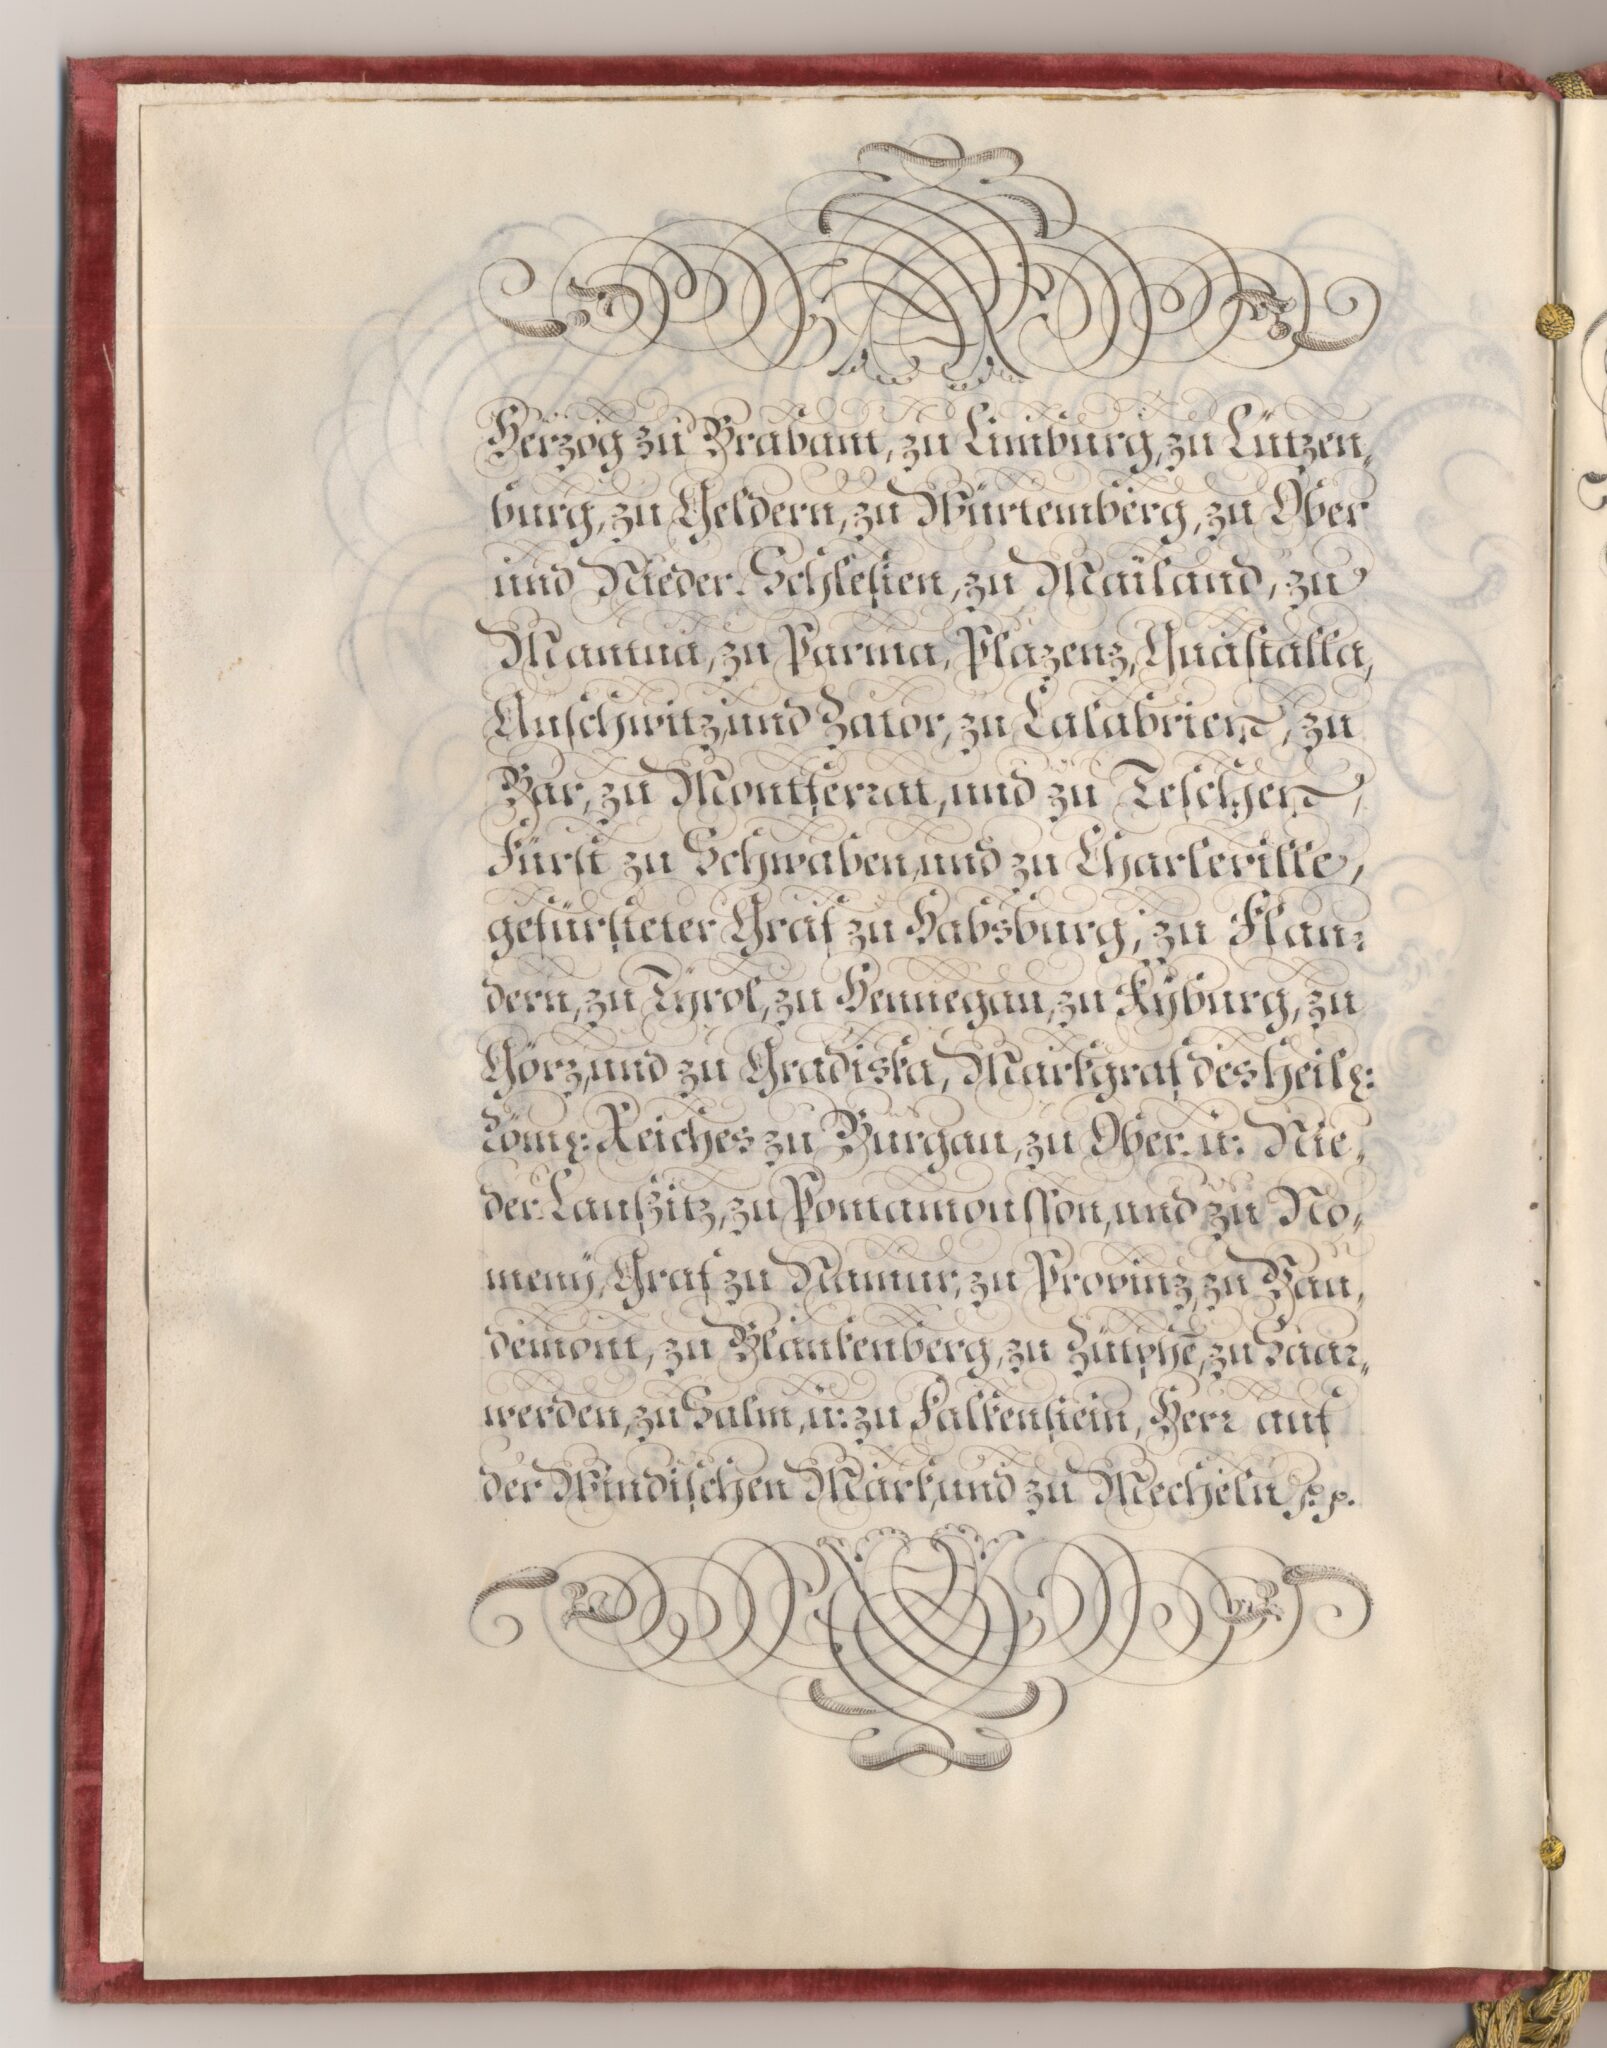 Herzog zu Brabant, zu Limburg, zu Lützen„
burg, zu Geldern, zu Würtemberg, zu Ober
und Nieder-Schlesien, zu Mailand, zu
Mantua, zu Parma, Plazenz, Quastalla,
Auschwitz, und Zator, zu Calabrien, zu
Bar, zu Montferrat, und zu Teschen,
Fürst zu Schwaben, und zu Charleville,
gefürsteter Graf zu Habsburg, zu Flan-
dern, zu Tÿrol, zu Hennegau, zu Kÿburg, zu
Görz, und zu Gradiska, Markgraf des heilg:
römg: Reiches zu Burgau, zu Ober- u: Nie„
der-Laußitz, zu Pontamousson, und zu No„
menÿ, Graf zu Namur, zu Provinz, zu Vau„
demont, zu Blankenberg, zu Zütphē, zu Saar„
werden, zu Salm, u: zu Falkenstein, Herr auf
der Windischen Mark, und zu Mecheln p. p.